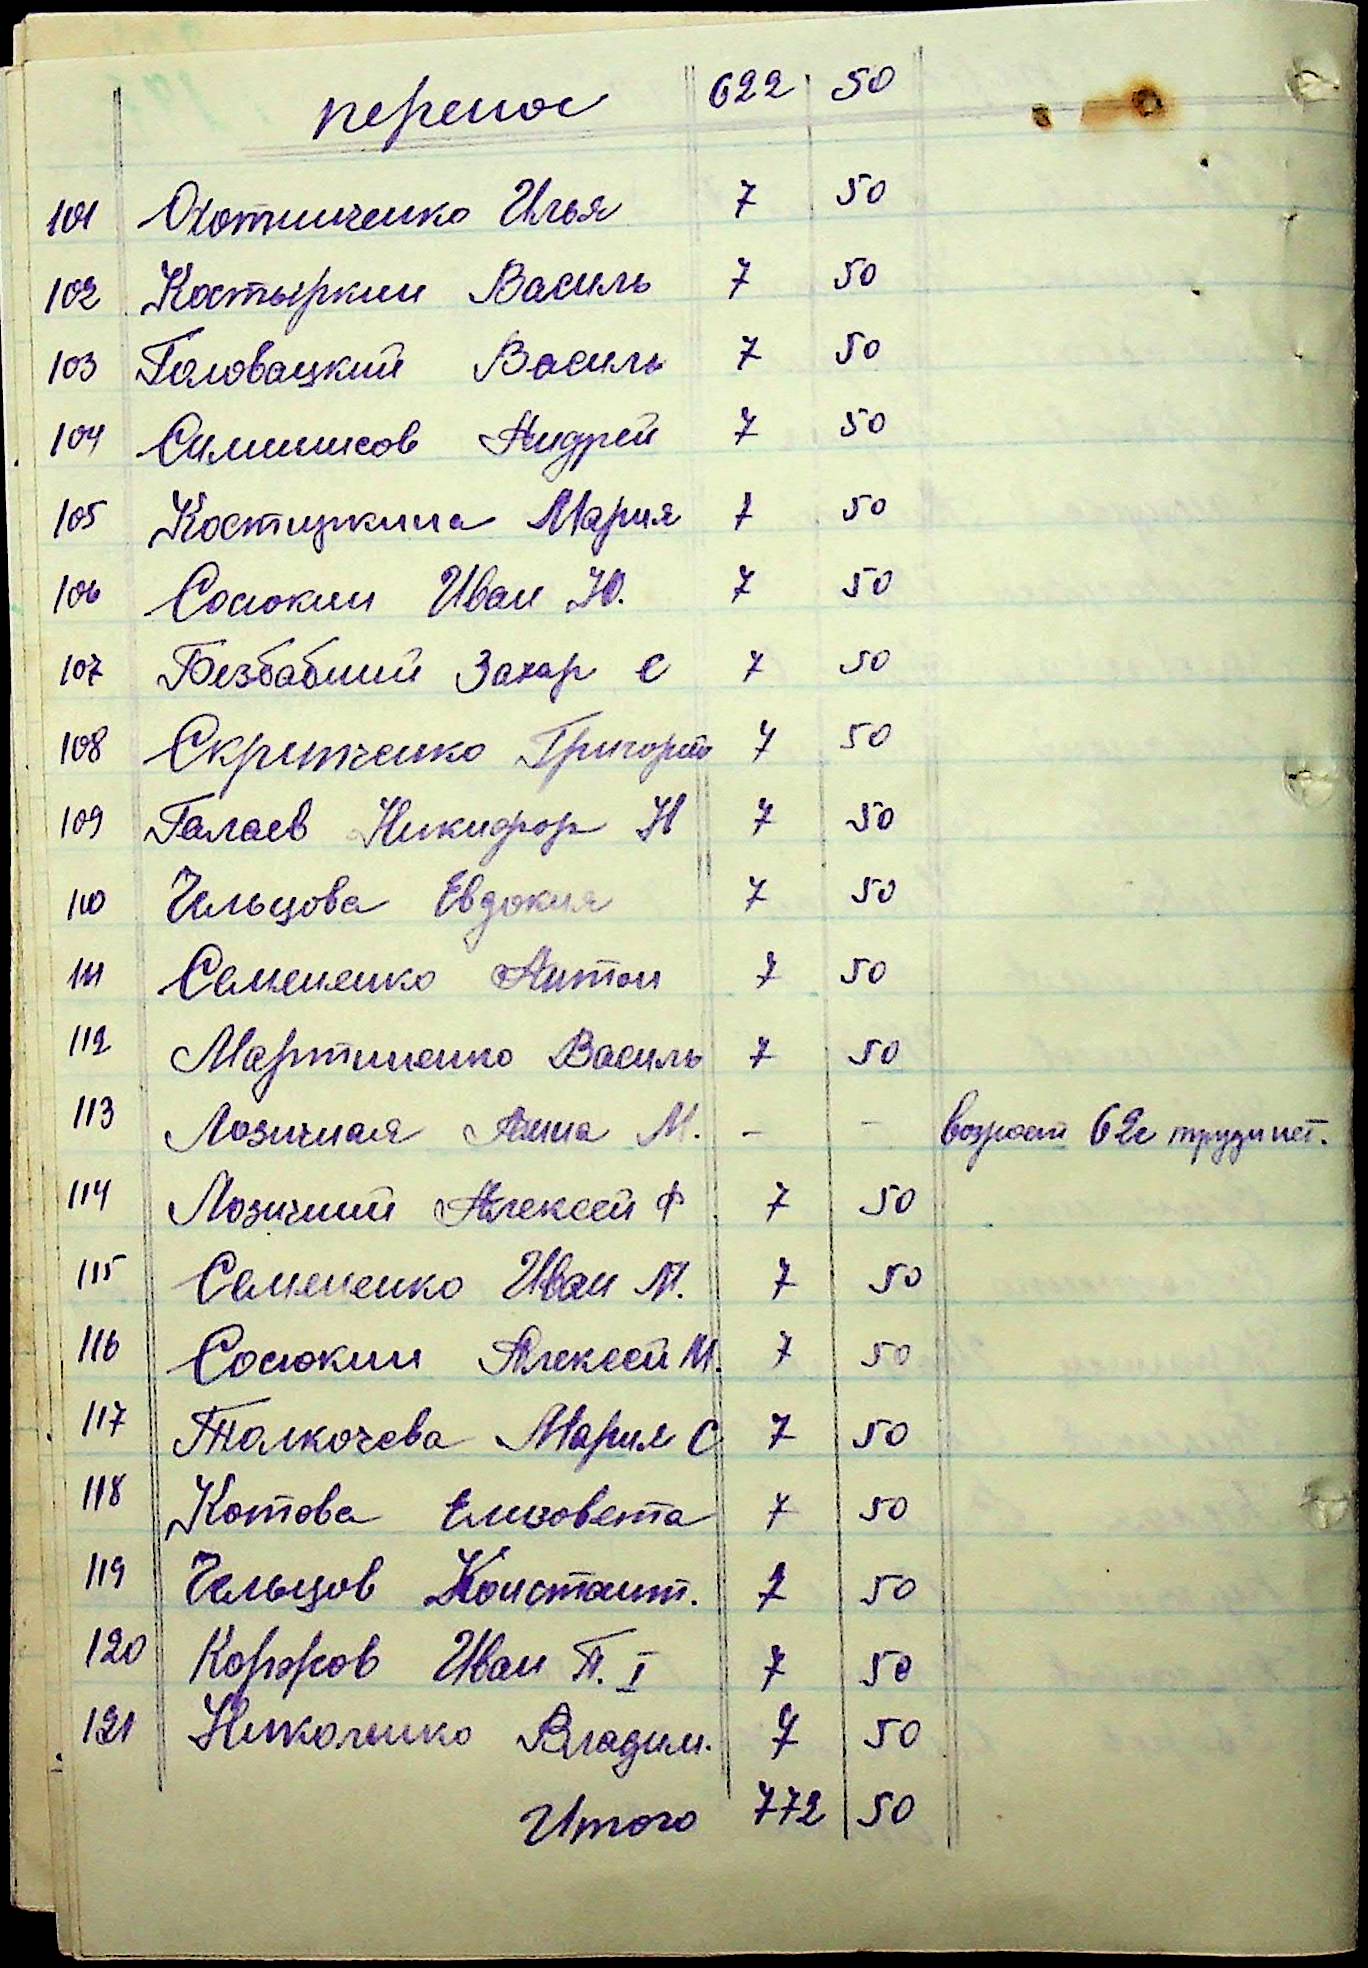 перенос 622 50
101 Охотниченко Илья 7 50
102 Костыркин Василь 7 50
103 Головацкий Василь 7 50
104 Андрей 7 50
105 Мария 7 50
106 Сосюкин Иван Ю. 7 50
107 Безбабний Захар С 7 50
108 Скрипченко Григорий 7 50
109 Галаев Никифор Н 7 50
110 Чельцова Евдокия 7 50
111 Семененко Антон 7 50
112 Мартиненко Василь 7 50
113 Лозичная Анна М. – – возраст 62г труди нет.
114 Лозичний Алексей Ф 7 50
115 Семененко Иван М. 7 50
116 Сосюкин Алексей И. 7 50
117 Толкочева Мария С 7 50
118 Котова Елизовета 7 50
119 Чельцов Константт. 7 50
120 Иван П. I 7 50
121 Николенко Владим. 7 50
Итого 772 50